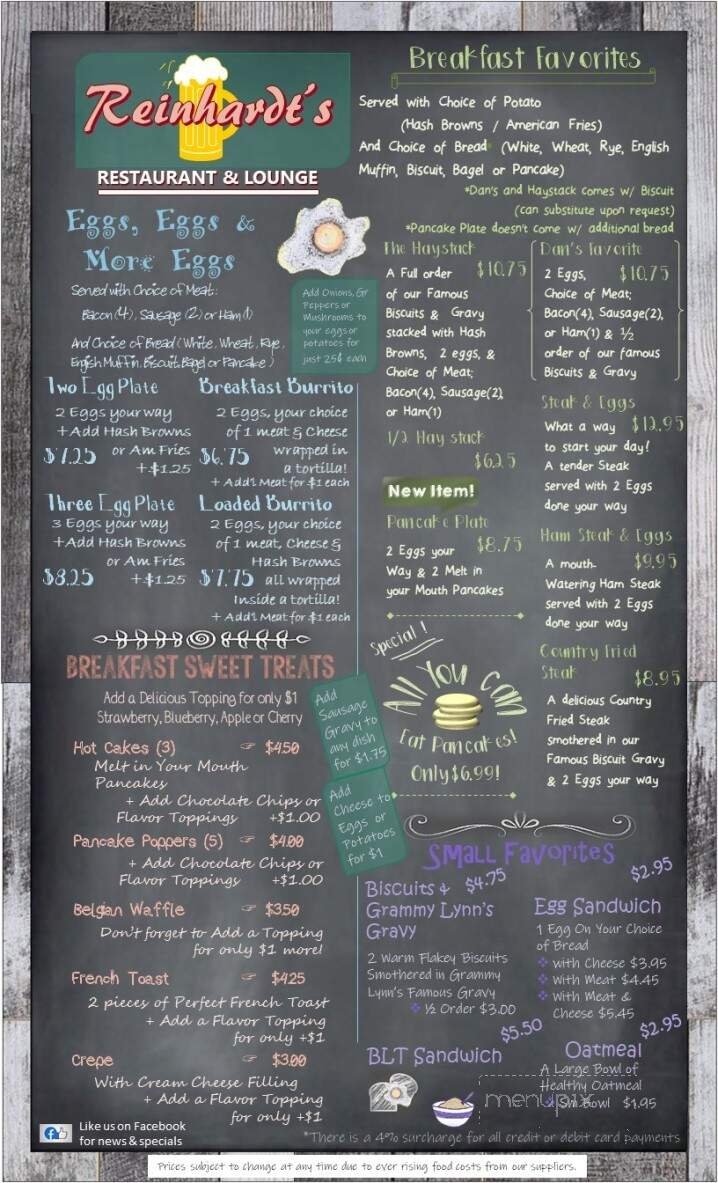 Reinhardt's
RESTAURANT & LOUNGE
Eggs, Eggs &
More Eggs
Served with Choice of Meat:
Bacon (4), Sausage (2) or Ham (1)
And Choice of Bread (White, Wheat, Rye,
English Muffin, Biscuit, Bagel or Pancake)
Add Onions, Gr
Peppers or
Mushrooms to
your eggs or
potatoes for
just 25¢ each
Two Egg Plate
2 Eggs your way
+Add Hash Browns
or Am Fries
$7.25
+$1.25
Breakfast Burrito
2 Eggs, your choice
of 1 meat & Cheese
$6.75
wrapped in
a tortilla!
+ Add'l Meat for $1 each
Three Egg Plate
3 Eggs your way
+Add Hash Browns
or Am Fries
$8.25
+$1.25
Loaded Burrito
2 Eggs, your choice
of 1 meat, Cheese &
Hash Browns
$7.75
all wrapped
inside a tortilla!
+ Add'l Meat for $1 each
BREAKFAST SWEET TREATS
Add a Delicious Topping for only $1
Strawberry, Blueberry, Apple or Cherry
Hot Cakes (3) ☞ $4.50
Melt in Your Mouth
Pancakes
+ Add Chocolate Chips or
Flavor Toppings +$1.00
Pancake Poppers (5) ☞ $4.00
+ Add Chocolate Chips or
Flavor Toppings +$1.00
Belgian Waffle ☞ $3.50
Don't forget to Add a Topping
for only $1 more!
French Toast ☞ $4.25
2 pieces of Perfect French Toast
+ Add a Flavor Topping
for only +$1
Crepe ☞ $3.00
With Cream Cheese Filling
+ Add a Flavor Topping
for only +$1
Add
Sausage
Gravy to
any dish
for $1.75
Add
Cheese to
Eggs or
Potatoes
for $1
Like us on Facebook
for news & specials
Breakfast Favorites
Served with Choice of Potato
(Hash Browns / American Fries)
And Choice of Bread (White, Wheat, Rye, English
Muffin, Biscuit, Bagel or Pancake)
*Dan's and Haystack comes w/ Biscuit
(can substitute upon request)
*Pancake Plate doesn't come w/ additional bread
The Haystack
$10.75
A Full order
of our Famous
Biscuits & Gravy
stacked with Hash
Browns, 2 eggs, &
Choice of Meat;
Bacon(4), Sausage(2),
or Ham(1)
1/2 Hay stack
$6.25
New Item!
Pancake Plate
$8.75
2 Eggs your
Way & 2 Melt in
your Mouth Pancakes
Special!
All You Can
Eat Pancakes!
Only $6.99!
Dan's Favorite
$10.75
2 Eggs,
Choice of Meat;
Bacon(4), Sausage(2),
or Ham(1) & ½
order of our famous
Biscuits & Gravy
Steak & Eggs
$12.95
What a way
to start your day!
A tender Steak
served with 2 Eggs
done your way
Ham Steak & Eggs
$9.95
A mouth-
Watering Ham Steak
served with 2 Eggs
done your way
Country Fried
Steak
$8.95
A delicious Country
Fried Steak
smothered in our
Famous Biscuit Gravy
& 2 Eggs your way
Small Favorites
Biscuits & $4.75
Grammy Lynn's
Gravy
2 Warm Flakey Biscuits
Smothered in Grammy
Lynn's Famous Gravy
❖ ½ Order $3.00
$2.95
Egg Sandwich
1 Egg On Your Choice
of Bread
❖ with Cheese $3.95
❖ with Meat $4.45
❖ with Meat &
Cheese $5.45
$5.50
BLT Sandwich
$2.95
Oatmeal
A Large Bowl of
Healthy Oatmeal
Sm Bowl $1.95
menupix
*There is a 4% surcharge for all credit or debit card payments
Prices subject to change at any time due to ever rising food costs from our suppliers.